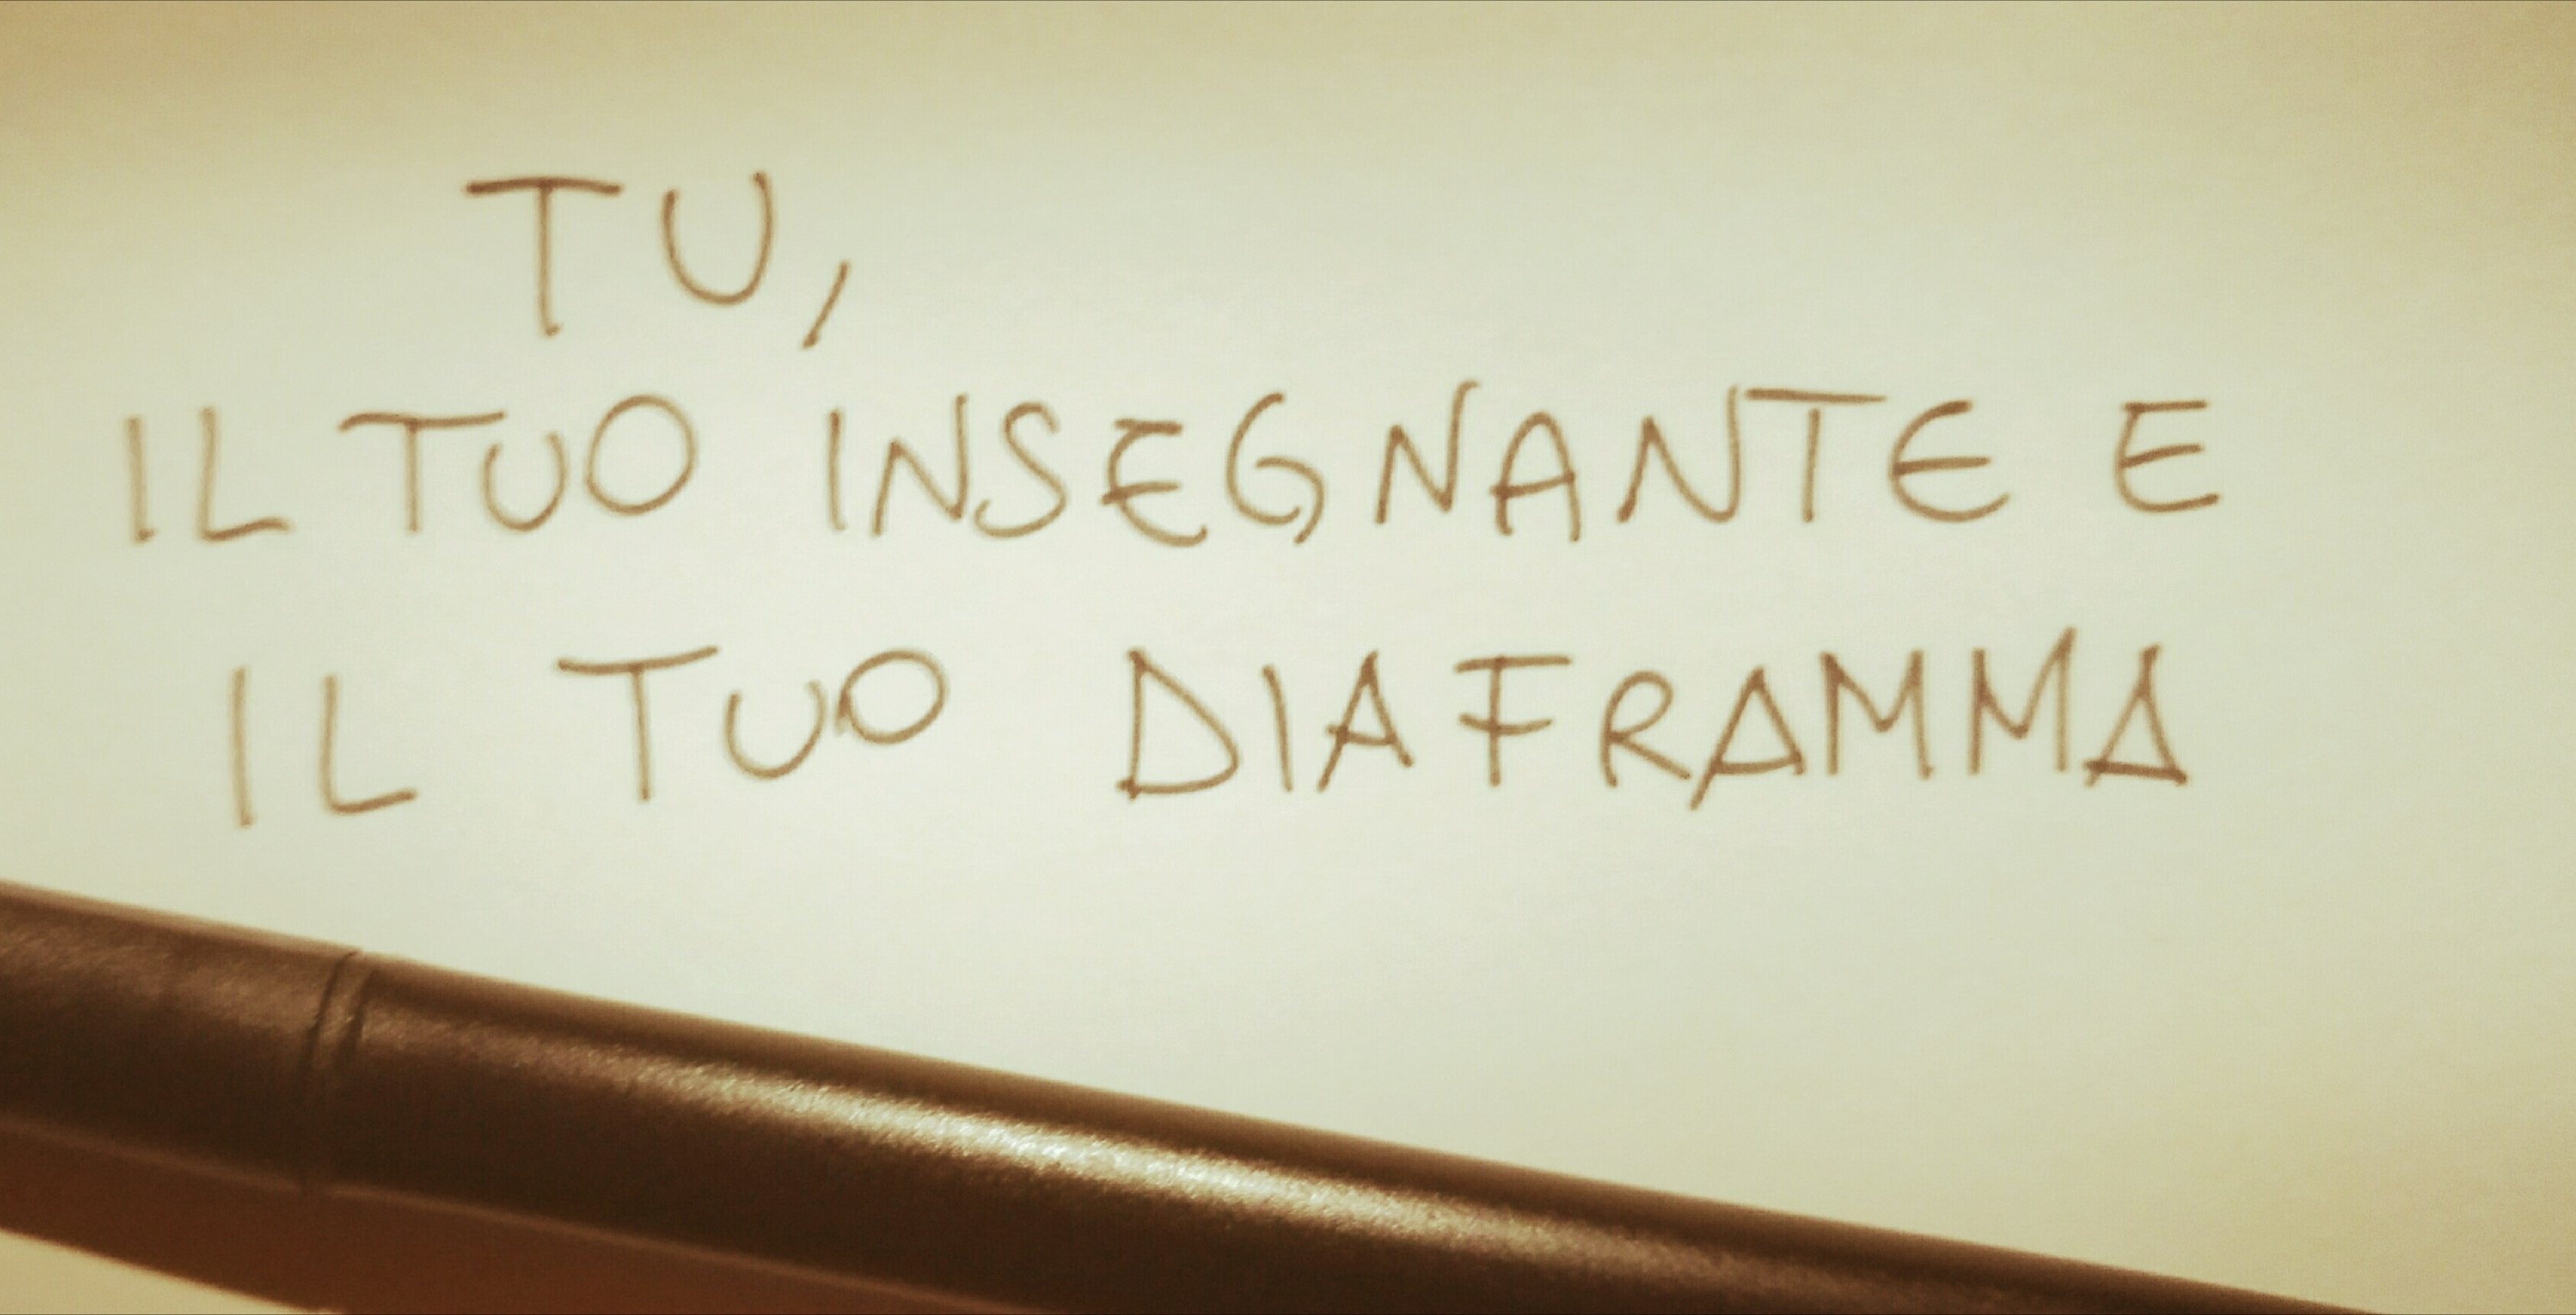 TU,
IL TUO INSEGNANTE E
IL TUO DIAFRAMMA